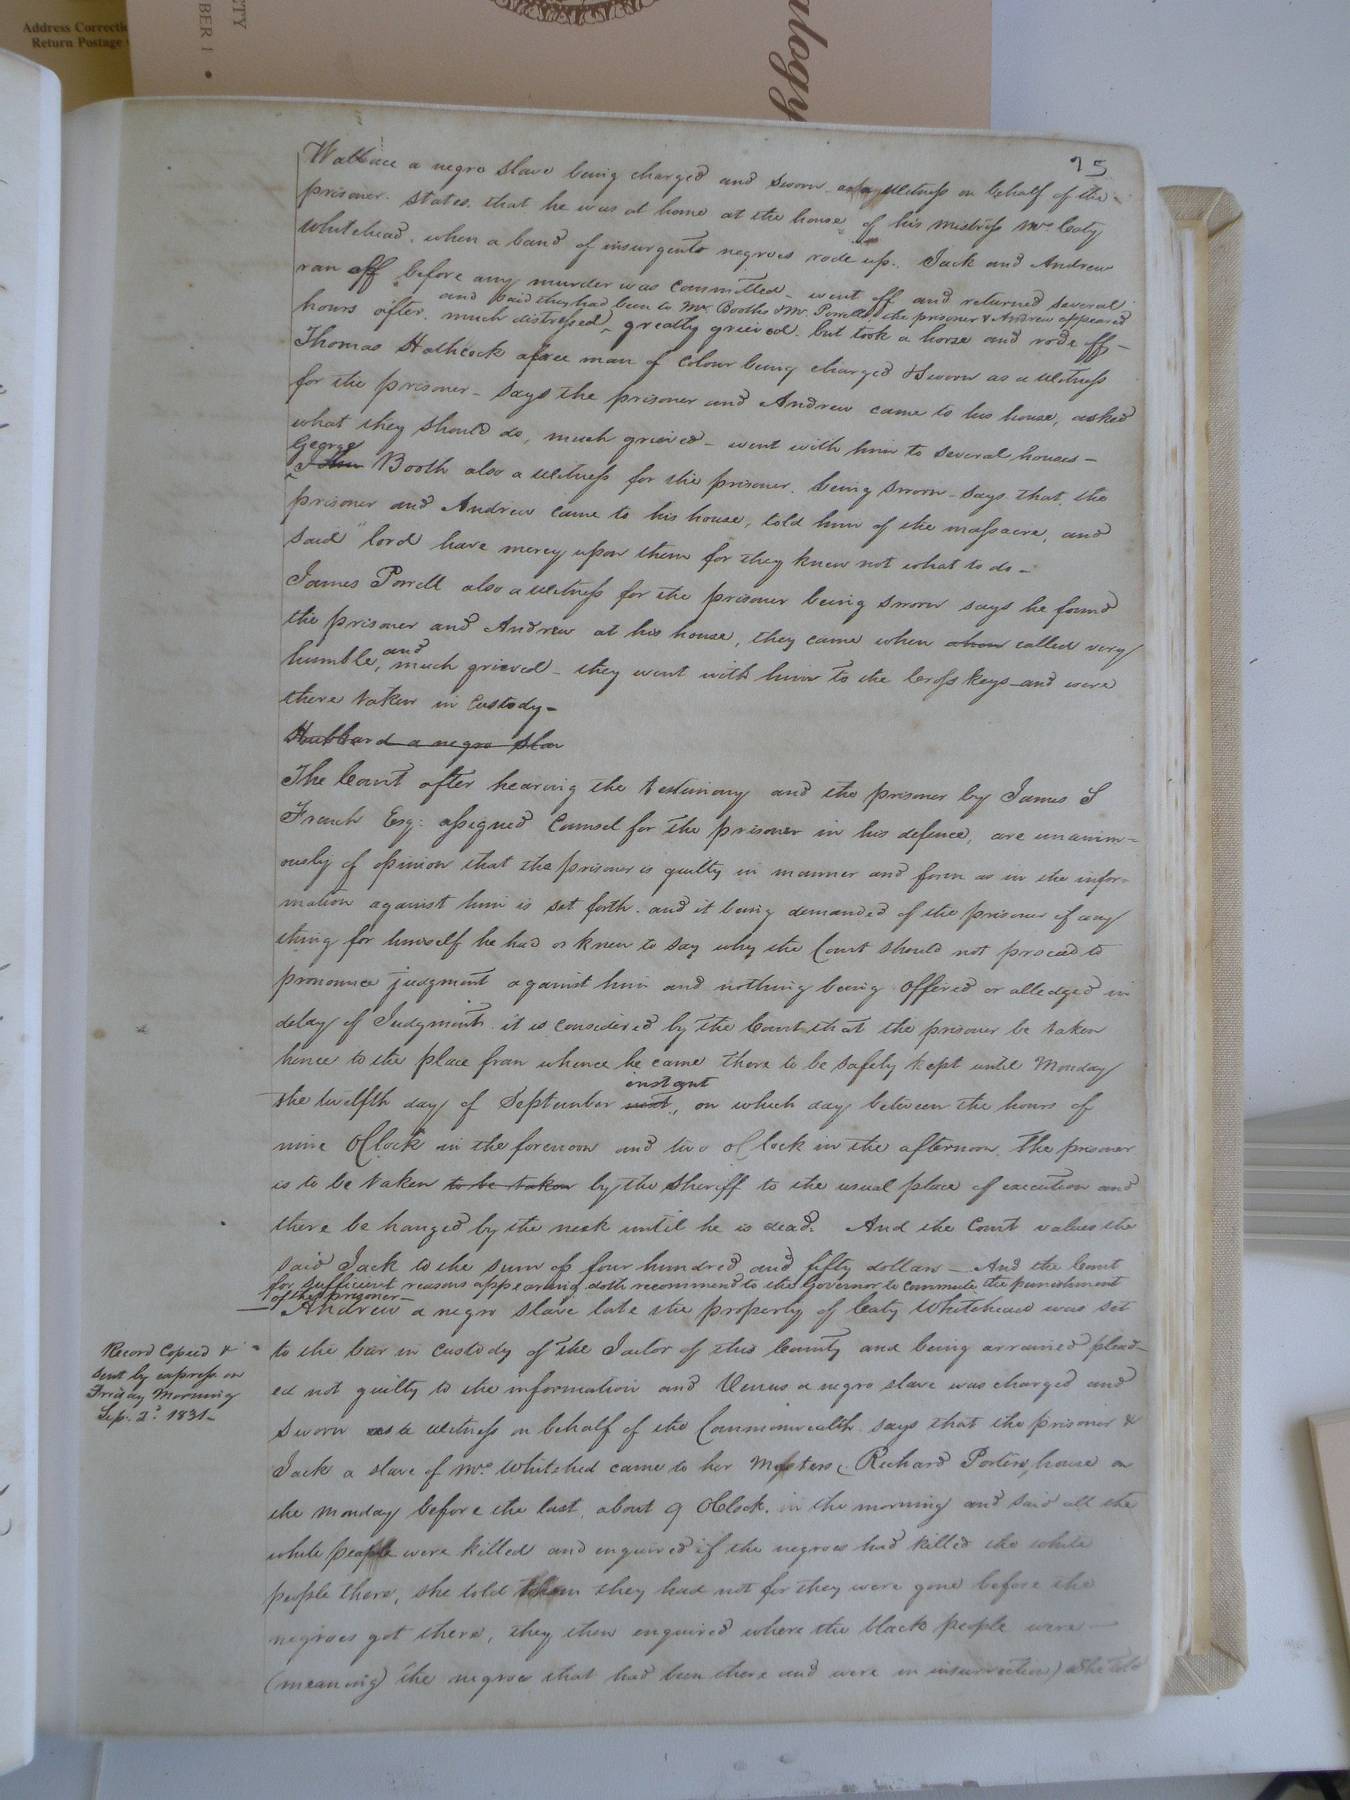 Address Correctio
Return Postage
ETY
BER 1 •
alogy
75
Wallace a negro slave being charged and sworn as a witness on behalf of the
prisoner. States that he was at home at the house of his mistress Mrs Caty
Whitehead, when a band of insurgents negroes rode up. Jack and Andrew
ran off before any murder was committed - went off and returned several
and said they had been to Mr. Booths & Mr. Powells, the prisoner & Andrew appeared
hours after. much distressed, greatly grieved. but took a horse and rode off -
Thomas Hathcock a free man of Colour being charged & sworn as a witness
for the prisoner - says the prisoner and Andrew came to his house, asked
what they should do, much grieved - went with him to several houses -
George
John Booth also a witness for the prisoner. being sworn - says that the
prisoner and Andrew came to his house, told him of the massacre, and
said "lord have mercy upon them for they knew not what to do -
James Powell also a witness for the prisoner being sworn says he found
the prisoner and Andrew at his house, they came when called very
humble, and much grieved - they went with him to the Cross keys - and were
there taken in Custody -
Hubbard a negro slav
The Court after hearing the testimony and the prisoner by James S
French Esq: assigned Counsel for the prisoner in his defence, are unanim=
ously of opinion that the prisoner is guilty in manner and form as in the infor-
mation against him is set forth. and it being demanded of the prisoner if any
thing for himself he had or knew to say why the Court should not proceed to
pronounce judgment against him and nothing being offered or alledged in
delay of Judgment. it is considered by the Court that the prisoner be taken
hence to the place from whence he came there to be safely kept until Monday
instant
the twelfth day of September next, on which day between the hours of
nine OClock in the forenoon and two oClock in the afternoon. the prisoner
is to be taken to be taken by the Sheriff to the usual place of execution and
there be hanged by the neck until he is dead. And the Court values the
said Jack to the sum of four hundred and fifty dollars - And the Court
for sufficient reasons appearing doth recommend to the Governor to commute the punishment
of the prisoner -
Andrew a negro slave late the property of Caty Whitehead was set
Record Copied &
sent by express on
Friday Morning
Sep. 2d 1831 -
to the bar in custody of the Jailor of this County and being arrained plead-
ed not guilty to the information and Venus a negro slave was charged and
sworn as a witness on behalf of the Commonwealth. says that the prisoner &
Jack a slave of Mrs Whitehed came to her Masters (Richard Porters) house on
the monday before the last, about 9 OClock. in the morning and said all the
white people were killed and enquired if the negroes had killed the white
people there, she told them they had not for they were gone before the
negroes got there, they then enquired where the black people were -
(meaning) the negroes that had been there and were in insurrection) she told